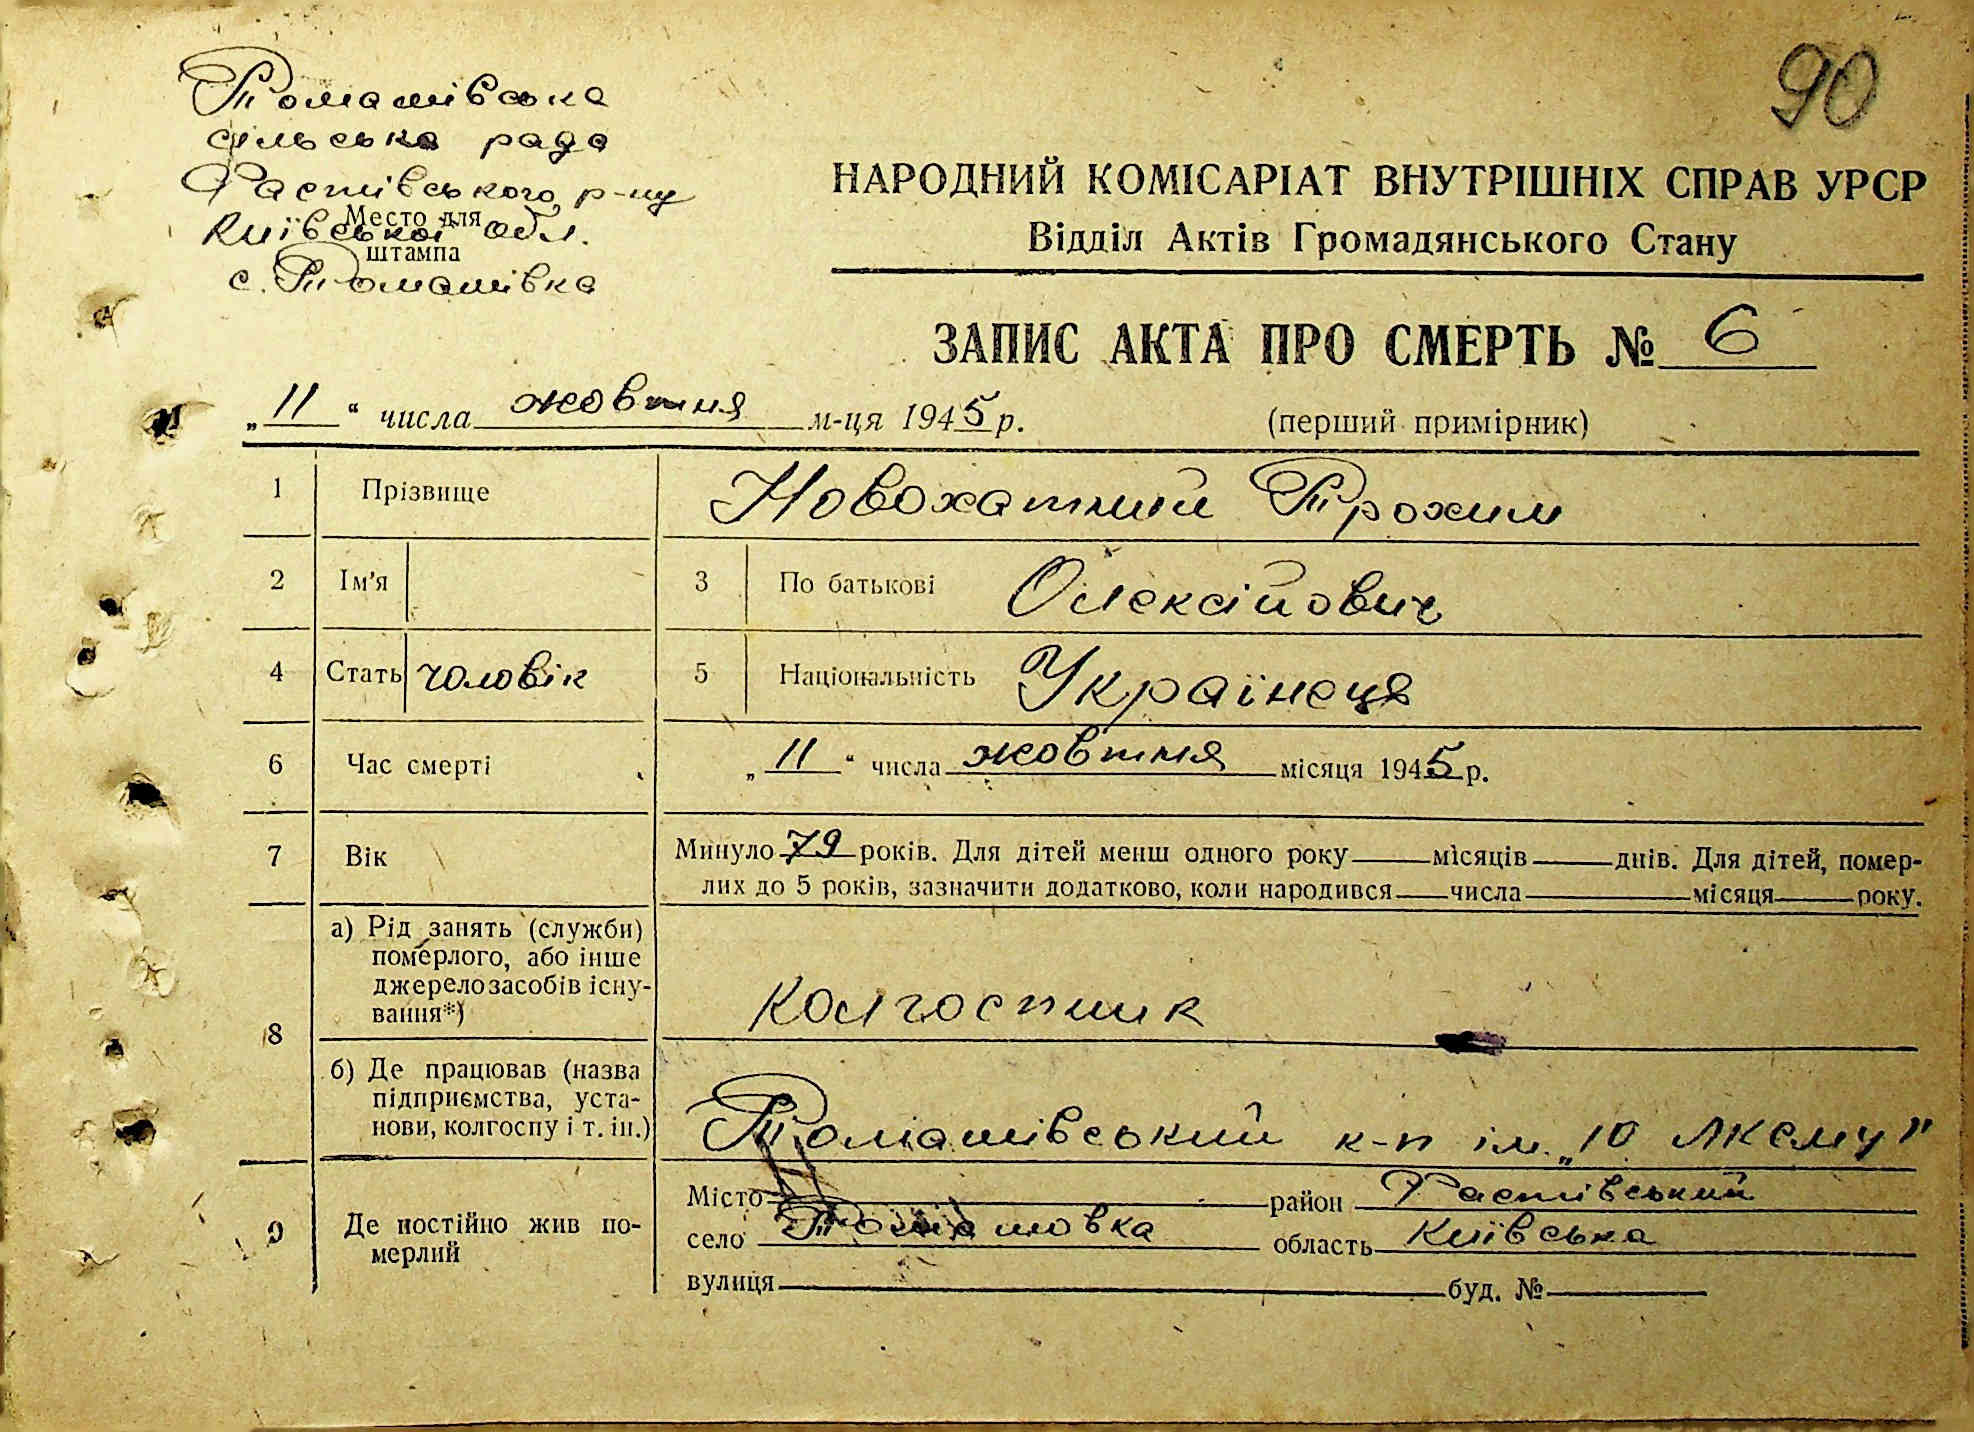 90
Томашівська
сільська рада
Фастівського р-ну
Київської обл.
Место для
штампа
с. Томашівка
НАРОДНИЙ КОМІСАРІАТ ВНУТРІШНІХ СПРАВ УРСР
Відділ Актів Громадянського Стану
ЗАПИС АКТА ПРО СМЕРТЬ № 6
„11“ числа жовтня м-ця 1945 р.
(перший примірник)
1 Прізвище Новохатний Трохим
2 Ім'я 3 По батькові Олексійович
4 Стать чоловік 5 Національність Українець
6 Час смерті „11“ числа жовтня місяця 1945 р.
7 Вік Минуло 79 років. Для дітей менш одного року місяців днів. Для дітей, помер-
лих до 5 років, зазначити додатково, коли народився числа місяця року.
8 а) Рід занять (служби)
померлого, або інше
джерело засобів існу-
вання*)
Колгоспник
б) Де працював (назва
підприємства, уста-
нови, колгоспу і т. ін.)
Томашівський к-п ім. „10 ЛКСМУ"
9 Де постійно жив по-
мерлий
Місто район Фастівський
село Томашовка область Київська
вулиця буд. №